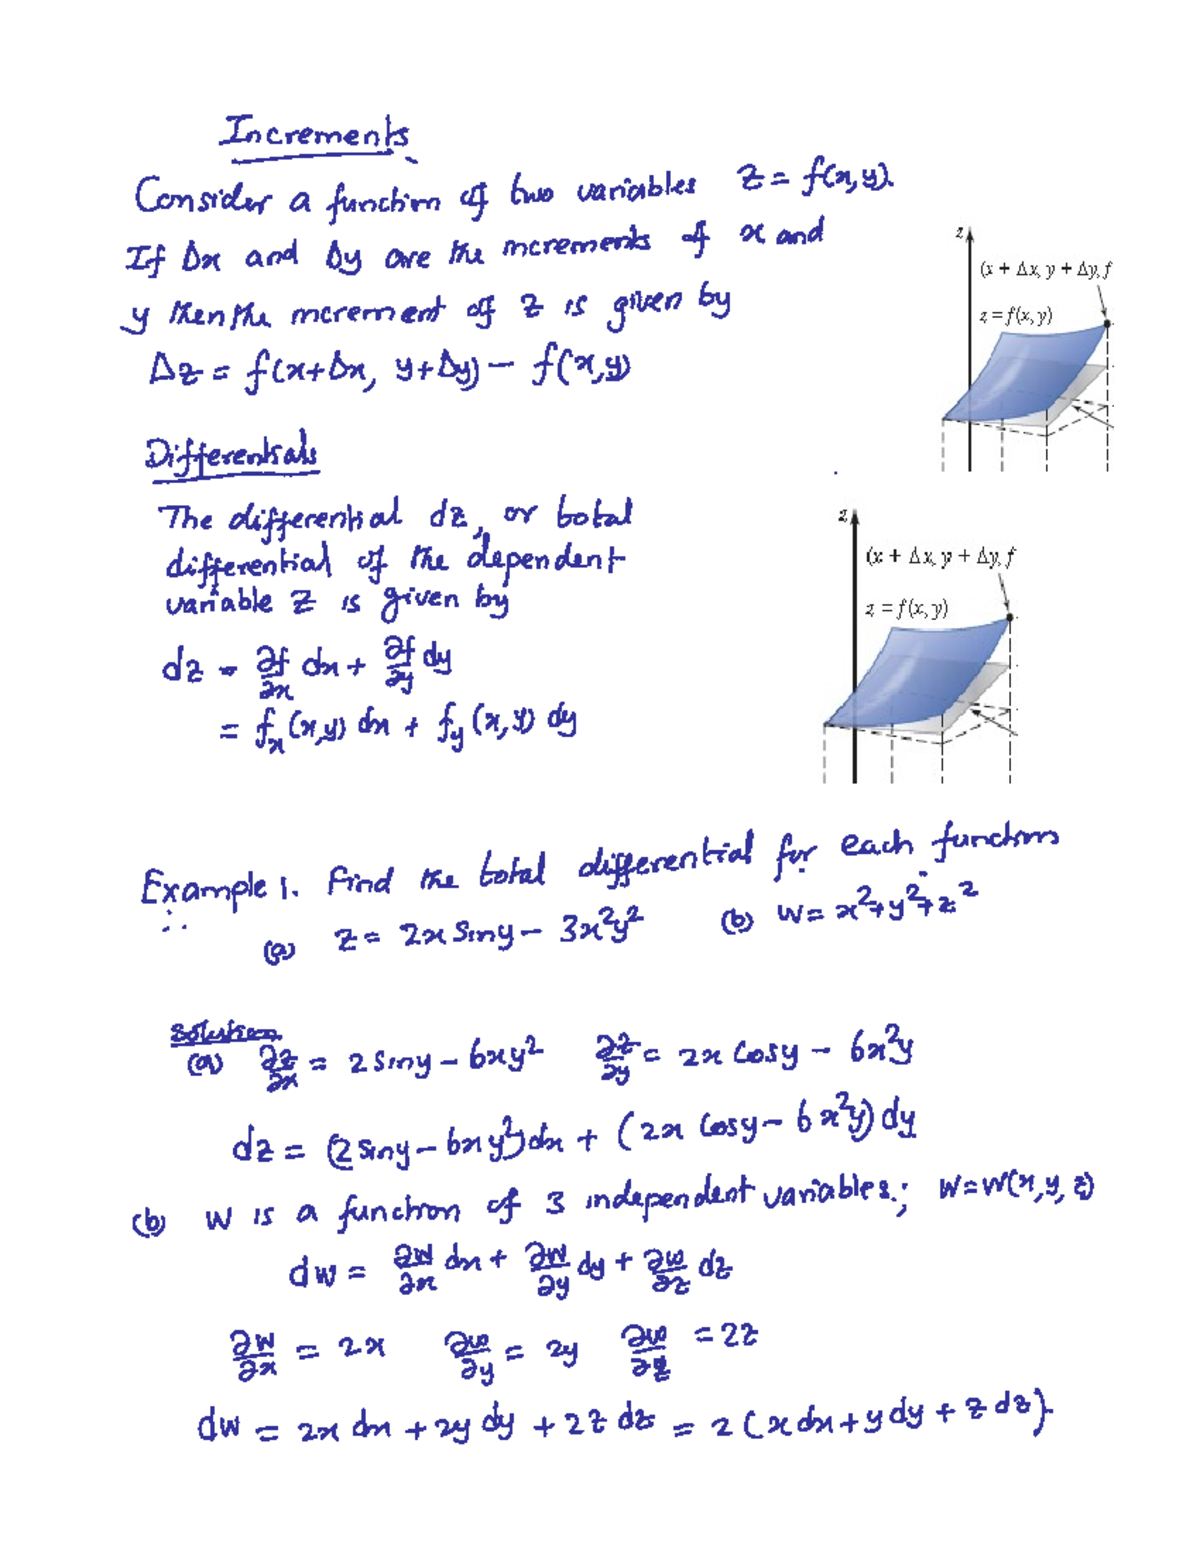 Increments
Consider a function of two variables z = f(x,y).
If Δx and Δy are the increments of x and
y then the increment of z is given by
Δz = f(x+Δx, y+Δy) − f(x,y)
z
(x + Δx, y + Δy, f
z = f(x, y)
Differentials
The differential dz, or total
differential of the dependent
variable z is given by
dz = ∂f/∂x dx + ∂f/∂y dy
= fₓ(x,y) dx + f_y(x,y) dy
z
(x + Δx, y + Δy, f
z = f(x, y)
Example 1. Find the total differential for each function
(a) z = 2x siny − 3x²y² (b) w = x²+y²+z²
Solution
(a) ∂z/∂x = 2 siny − 6xy² ∂z/∂y = 2x cosy − 6x²y
dz = (2 siny − 6xy²)dx + (2x cosy − 6x²y) dy
(b) w is a function of 3 independent variables.; w=w(x,y,z)
dw = ∂w/∂x dx + ∂w/∂y dy + ∂w/∂z dz
∂w/∂x = 2x ∂w/∂y = 2y ∂w/∂z = 2z
dw = 2x dx + 2y dy + 2z dz = 2(x dx + y dy + z dz).